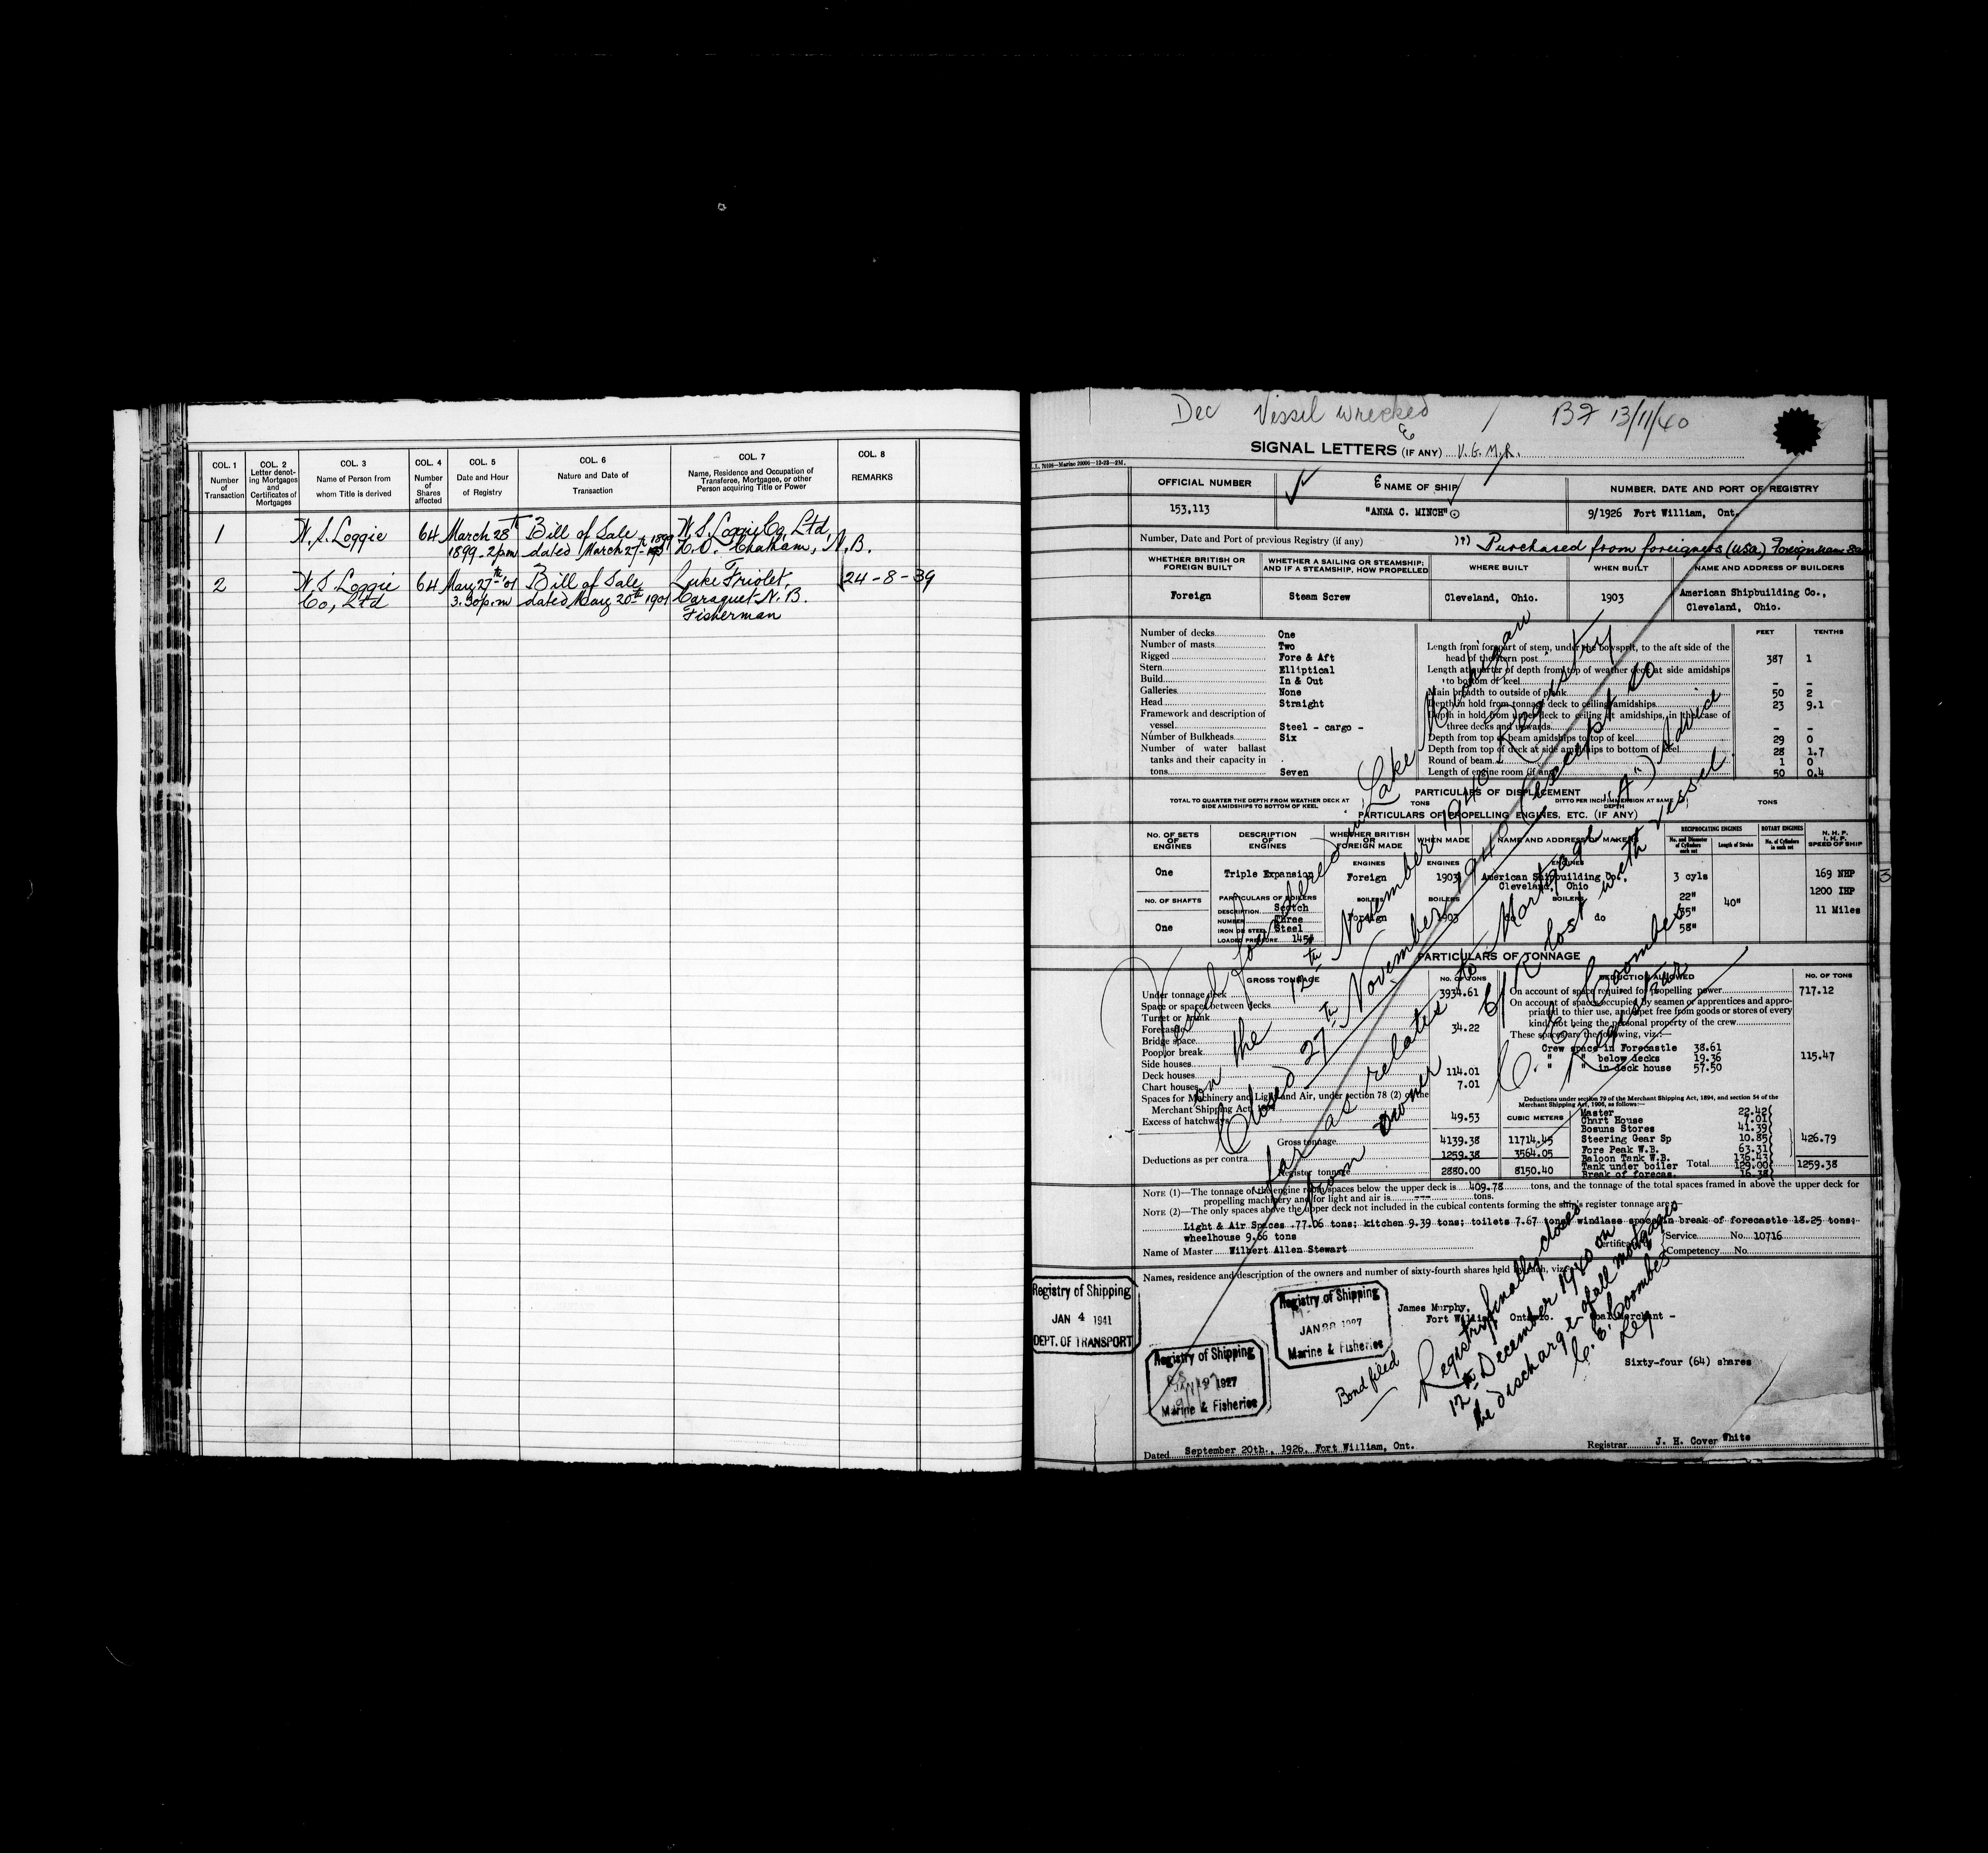 COL. 1
Number
of
Transaction
COL. 2
Letter denot-
ing Mortgages
and
Certificates of
Mortgages
COL. 3
Name of Person from
whom Title is derived
COL. 4
Number
of
Shares
affected
COL. 5
Date and Hour
of Registry
COL. 6
Nature and Date of
Transaction
COL. 7
Name, Residence and Occupation of
Transferee, Mortgagee, or other
Person acquiring Title or Power
COL. 8
REMARKS
1 W. S. Loggie 64 March 28th Bill of Sale W. S. Loggie Co, Ltd,
1899 - 2 pm dated March 27th 1899 H.O. Chatham, N.B.
2 W. S. Loggie 64 May 27th '01 Bill of Sale Luke Friolet, 24-8-39
Co, Ltd 3.30 p.m dated May 20th 1901 Caraquet N.B.
Fisherman
Dec Vessel wrecked / BF 13/11/40
SIGNAL LETTERS (IF ANY) V.G.M.R.
OFFICIAL NUMBER NAME OF SHIP NUMBER, DATE AND PORT OF REGISTRY
153,113 "ANNA C. MINCH" 9/1926 Fort William, Ont.
Number, Date and Port of previous Registry (if any) Purchased from foreigners (USA) Foreign name
WHETHER BRITISH OR
FOREIGN BUILT
WHETHER A SAILING OR STEAMSHIP;
AND IF A STEAMSHIP, HOW PROPELLED
WHERE BUILT
WHEN BUILT
NAME AND ADDRESS OF BUILDERS
Foreign Steam Screw Cleveland, Ohio. 1903 American Shipbuilding Co.,
Cleveland, Ohio.
Number of decks One
Number of masts Two
Rigged Fore & Aft
Stern Elliptical
Build In & Out
Galleries None
Head Straight
Framework and description of
vessel Steel - cargo -
Number of Bulkheads Six
Number of water ballast
tanks and their capacity in
tons Seven
FEET TENTHS
Length from forepart of stem, under the bowsprit, to the aft side of the
head of the stern post 387 1
Length at quarter of depth from top of weather deck at side amidships
to bottom of keel - -
Main breadth to outside of plank 50 2
Depth in hold from tonnage deck to ceiling amidships 23 9.1
Depth in hold from upper deck to ceiling at amidships, in the case of
three decks and upwards - -
Depth from top of beam amidships to top of keel 29 0
Depth from top of deck at side amidships to bottom of keel 28 1.7
Round of beam 1 0
Length of engine room (if any) 50 0.4
PARTICULARS OF DISPLACEMENT
TOTAL TO QUARTER THE DEPTH FROM WEATHER DECK AT
SIDE AMIDSHIPS TO BOTTOM OF KEEL
TONS
DITTO PER INCH IMMERSION AT SAME
DEPTH
TONS
PARTICULARS OF PROPELLING ENGINES, ETC. (IF ANY)
NO. OF SETS
OF
ENGINES
DESCRIPTION
OF
ENGINES
WHETHER BRITISH
OR
FOREIGN MADE
WHEN MADE
NAME AND ADDRESS OF MAKERS
RECIPROCATING ENGINES
No. and Diameter
of Cylinders
each set
Length of Stroke
ROTARY ENGINES
No. of Cylinders
in each set
N. H. P.
I. H. P.
SPEED OF SHIP
ENGINES ENGINES ENGINES
One Triple Expansion Foreign 1903 American Shipbuilding Co. 3 cyls 169 NHP
Cleveland, Ohio
1200 IHP
NO. OF SHAFTS PARTICULARS OF BOILERS BOILERS BOILERS BOILERS 22"
DESCRIPTION Scotch 40"
NUMBER Three Foreign 1903 do do 35" 11 Miles
One IRON OR STEEL Steel 58"
LOADED PRESSURE 145#
PARTICULARS OF TONNAGE
GROSS TONNAGE NO. OF TONS
Under tonnage deck 3934.61
Space or spaces between decks
Turret or trunk
Forecastle 34.22
Bridge space
Poop or break
Side houses
Deck houses 114.01
Chart houses 7.01
Spaces for Machinery and Light and Air, under section 78 (2) of the
Merchant Shipping Act,
Excess of hatchways 49.53
Gross tonnage 4139.38 11714.45
Deductions as per contra 1259.38 3564.05
Register tonnage 2880.00 8150.40
CUBIC METERS
DEDUCTIONS ALLOWED NO. OF TONS
On account of space required for propelling power 717.12
On account of spaces occupied by seamen or apprentices and appro-
priated to thier use, and kept free from goods or stores of every
kind, not being the personal property of the crew
These spaces are the following, viz:—
Crew space in Forecastle 38.61
" " below decks 19.36 115.47
" " in deck house 57.50
Deductions under section 79 of the Merchant Shipping Act, 1894, and section 54 of the
Merchant Shipping Act, 1906, as follows:—
Master 22.42
Chart House 7.01
Bosuns Stores 41.39
Steering Gear Sp 10.85 426.79
Fore Peak W.B. 63.31
Baloon Tank W.B. 136.43
Tank under boiler 129.00 Total 1259.38
Break of forecas. 16.38
NOTE (1)—The tonnage of the engine room spaces below the upper deck is 409.78 tons, and the tonnage of the total spaces framed in above the upper deck for
propelling machinery and for light and air is --- tons.
NOTE (2)—The only spaces above the upper deck not included in the cubical contents forming the ship's register tonnage are:—
Light & Air Spaces 77.06 tons; kitchen 9.39 tons; toilets 7.67 tons; windlass space in break of forecastle 18.25 tons;
wheelhouse 9.66 tons
Name of Master Wilbert Allen Stewart Certificate Service No. 10716
Competency No.
Names, residence and description of the owners and number of sixty-fourth shares held by each, viz:
James Murphy,
Fort William, Ontario. Coal Merchant -
Sixty-four (64) shares
Vessel foundered in Lake Michigan
on the 12th November 1940 Registry
Closed 27th November 1940 (except so
far as relates to Mortgage "A") Advice
from owner C/R lost with vessel.
C. E. Coombes
Registrar
Registry finally closed
12th December 1940 on
the discharge of all mortgages
C. E. Coombes
Reg
Bond filed
Registry of Shipping
JAN 4 1941
DEPT. OF TRANSPORT
Registry of Shipping
1927
Marine & Fisheries
Registry of Shipping
JAN 28 1927
Marine & Fisheries
Dated September 20th., 1926. Fort William, Ont. Registrar J. H. Cover White